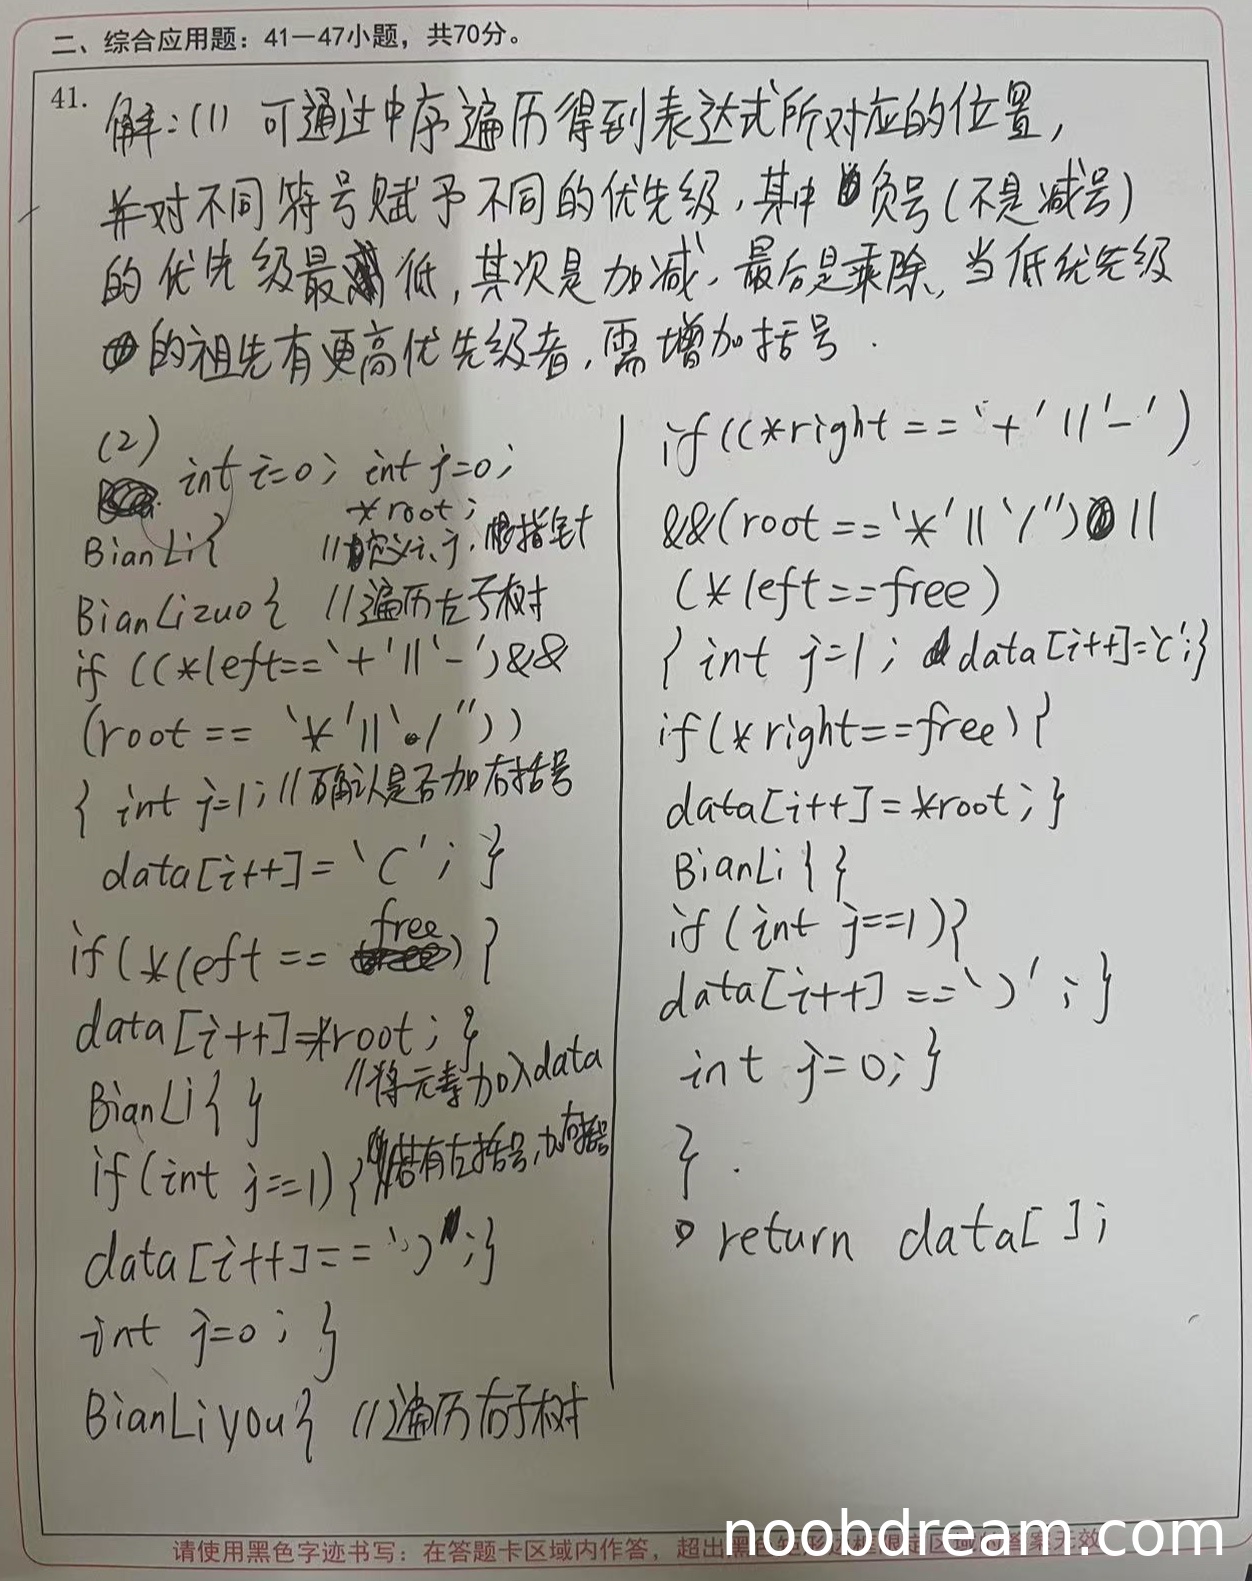 二、综合应用题：41—47小题，共70分。
41.
解：(1) 可通过中序遍历得到表达式所对应的位置，
并对不同符号赋予不同的优先级，其中负号(不是减号)
的优先级最低，其次是加减，最后是乘除，当低优先级
的祖先有更高优先级者，需增加括号．
(2)
int i=0; int j=0;
*root;
BianLi{ //定义i、j，根指针
BianLizuo{ //遍历左子树
if ((*left=='+'||'-')&&
(root == '*'||'/'))
{ int j=1; //确认是否加右括号
data[i++]='('; }
if(*left == free) {
data[i++]=*root; }
//将元素加入data
BianLi{ }
if(int j==1) { //若有左括号，加右括号
data[i++]==')';}
int j=0; }
BianLiyou{ //遍历右子树
if((*right=='+'||'-')
&&(root=='*'||'/')||
(*left==free)
{ int j=1; data[i++]='(';}
if(*right==free){
data[i++]=*root;}
BianLi{}
if(int j==1){
data[i++]==')';}
int j=0;}
}.
return data[ ];
noobdream.com
请使用黑色字迹书写：在答题卡区域内作答，超出黑色矩形边框限定区域的答案无效